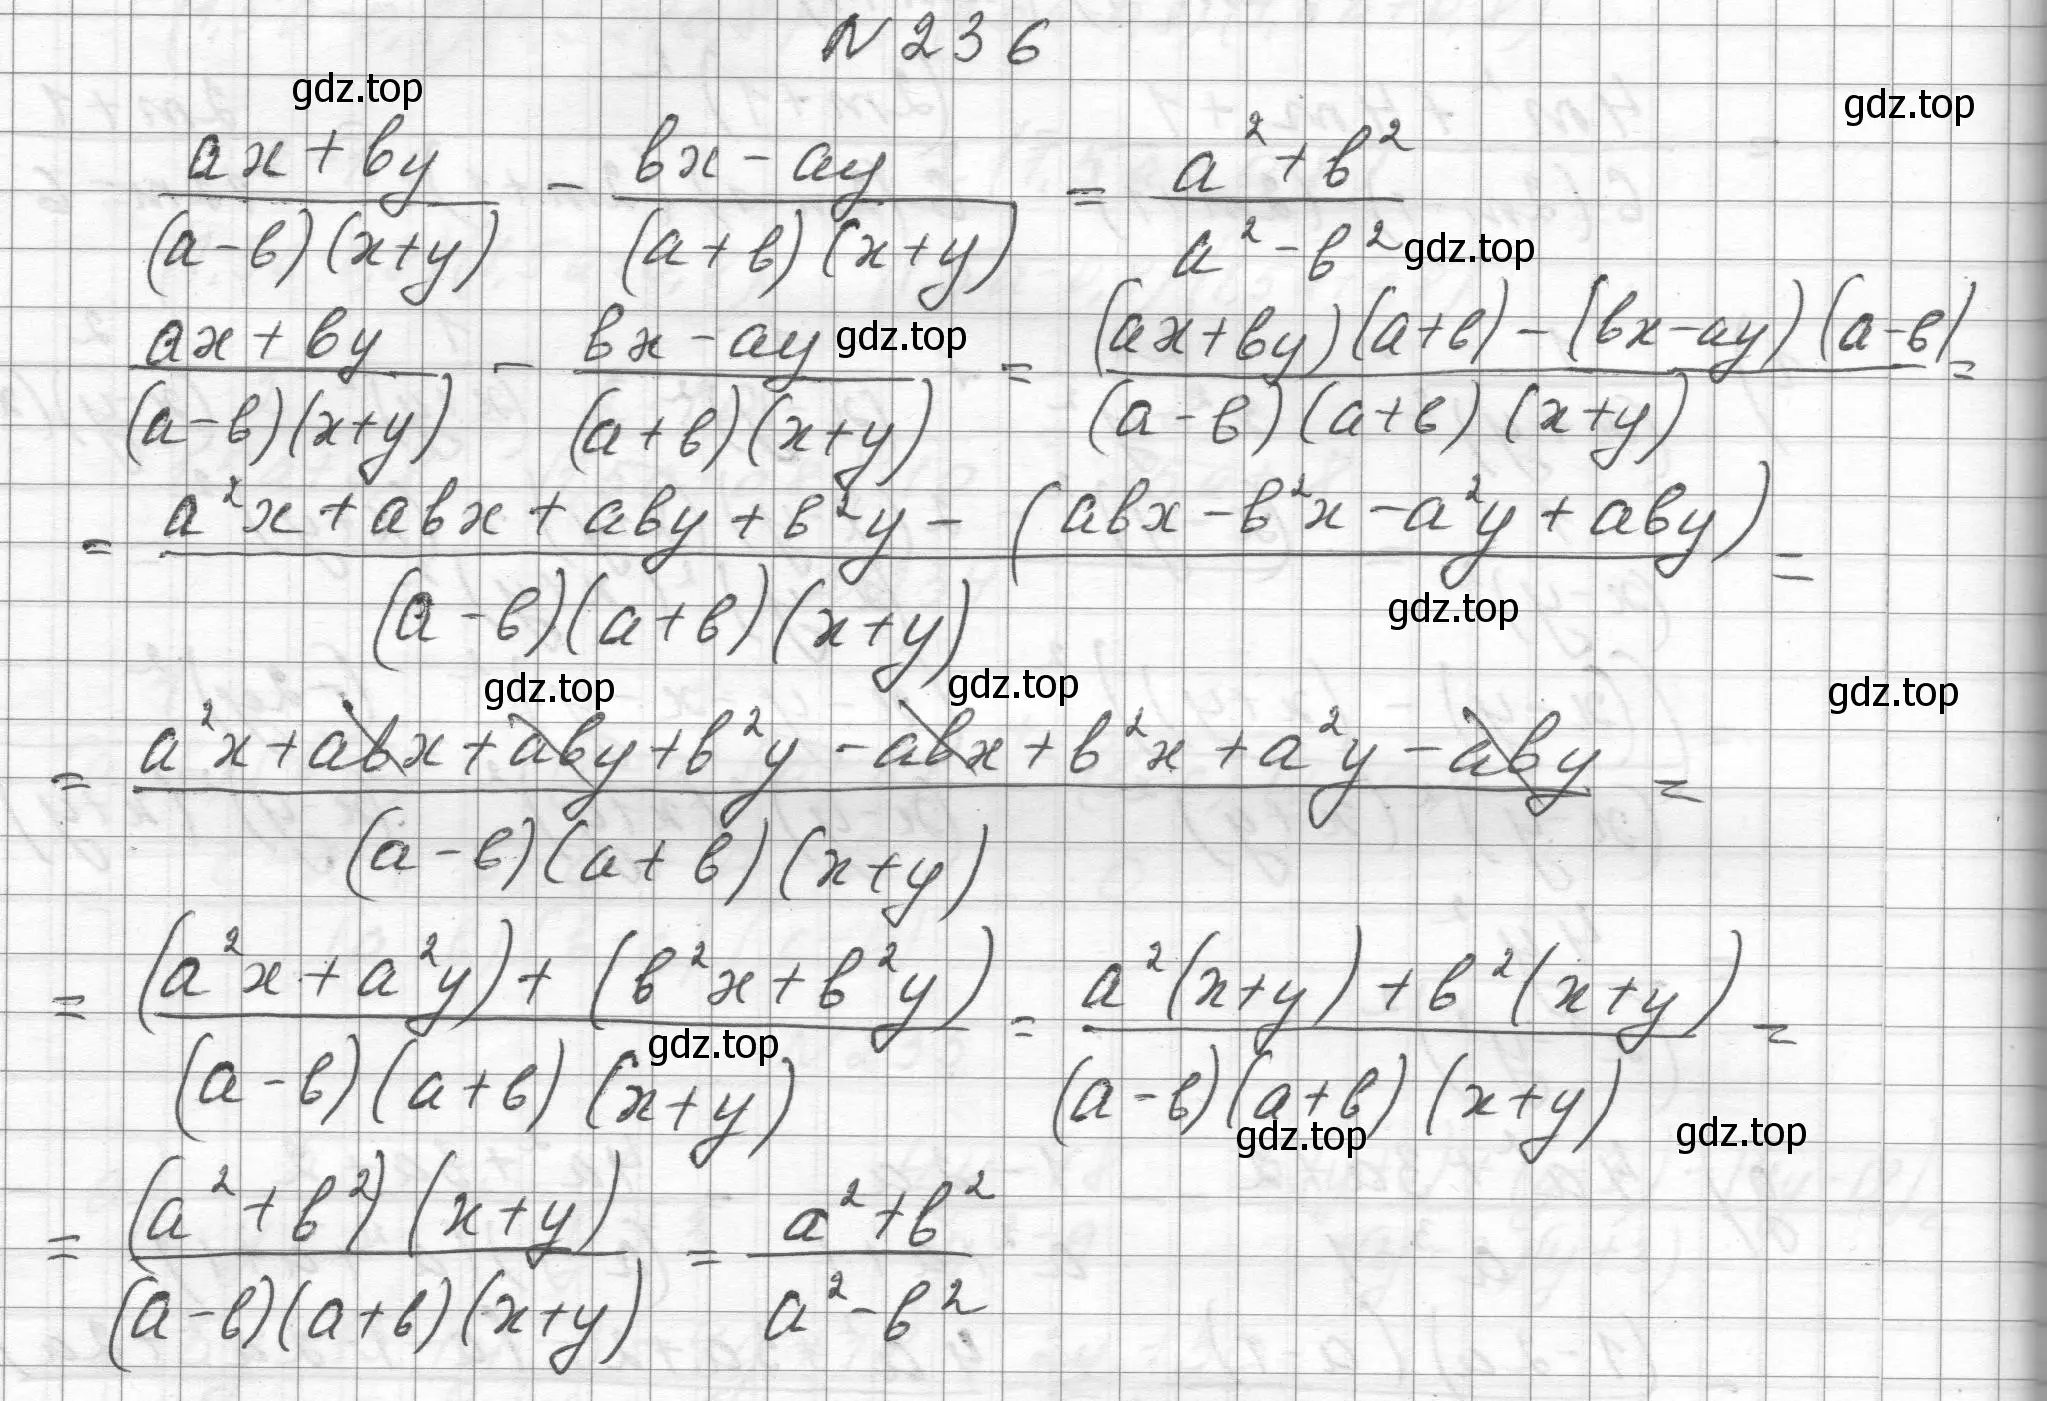 N 236
gdz.top
gdz.top
(ax + вy)/((a-в)(x+y)) - (вx - ay)/((a+в)(x+y)) = (a² + в²)/(a² - в²)
gdz.top
(ax + вy)/((a-в)(x+y)) - (вx - ay)/((a+в)(x+y)) = ((ax+вy)(a+в) - (вx-ay)(a-в))/((a-в)(a+в)(x+y)) =
gdz.top
= (a²x + aвx + aвy + в²y - (aвx - в²x - a²y + aвy))/((a-в)(a+в)(x+y)) =
gdz.top
gdz.top
gdz.top
gdz.top
= (a²x + aвx + aвy + в²y - aвx + в²x + a²y - aвy)/((a-в)(a+в)(x+y)) =
= ((a²x + a²y) + (в²x + в²y))/((a-в)(a+в)(x+y)) = (a²(x+y) + в²(x+y))/((a-в)(a+в)(x+y)) =
gdz.top
gdz.top
gdz.top
= ((a² + в²)(x+y))/((a-в)(a+в)(x+y)) = (a² + в²)/(a² - в²)